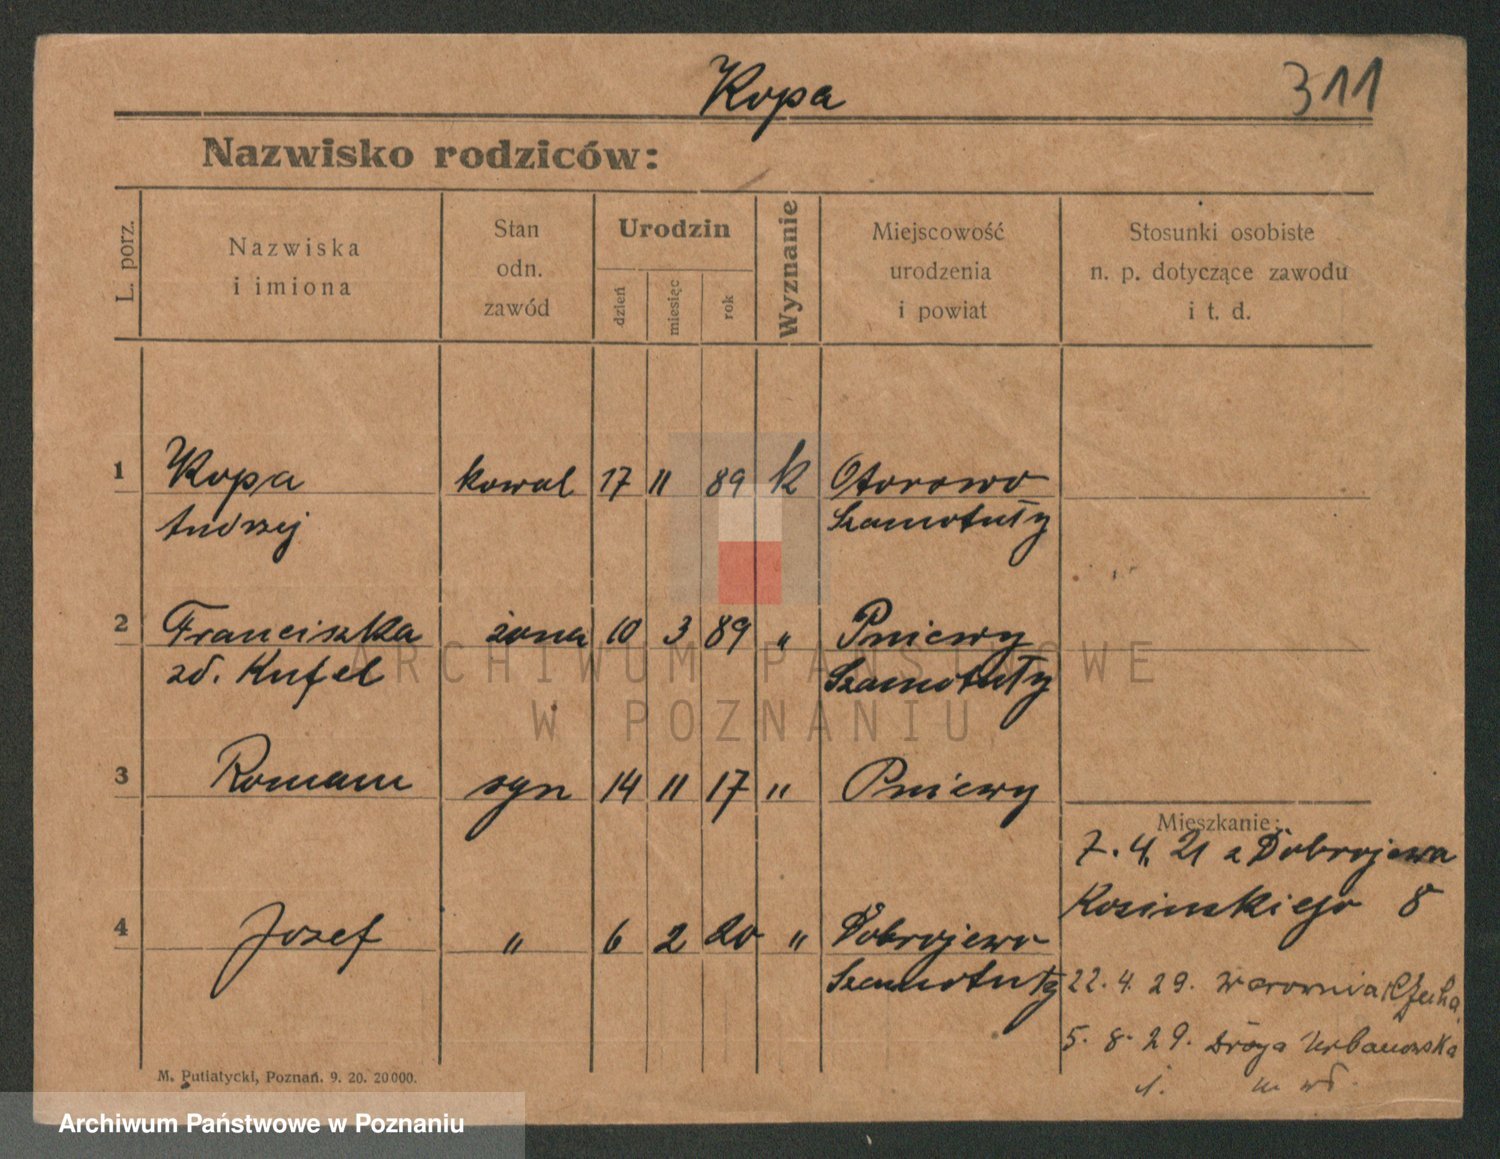 Kopa
311
Nazwisko rodziców:
L. porz.
Nazwiska
i imiona
Stan
odn.
zawód
Urodzin
dzień
miesiąc
rok
Wyznanie
Miejscowość
urodzenia
i powiat
Stosunki osobiste
n. p. dotyczące zawodu
i t. d.
1 Kopa kowal 17 11 89 k Otorowo
Andrzej Szamotuły
2 Franciszka żona 10 3 89 " Pniewy
zd. Kufel Szamotuły
3 Roman syn 14 11 17 " Pniewy
Mieszkanie:
7. 4. 21 z Dobrojewa
Kosinskiego 8
4 Jozef " 6 2 20 " Dobrojewo
Szamotuły
22. 4. 29. Warownia
5. 8. 29. Droga Urbanowska
M. Putiatycki, Poznań. 9. 20. 20000.
ARCHIWUM PAŃSTWOWE
W POZNANIU
Archiwum Państwowe w Poznaniu